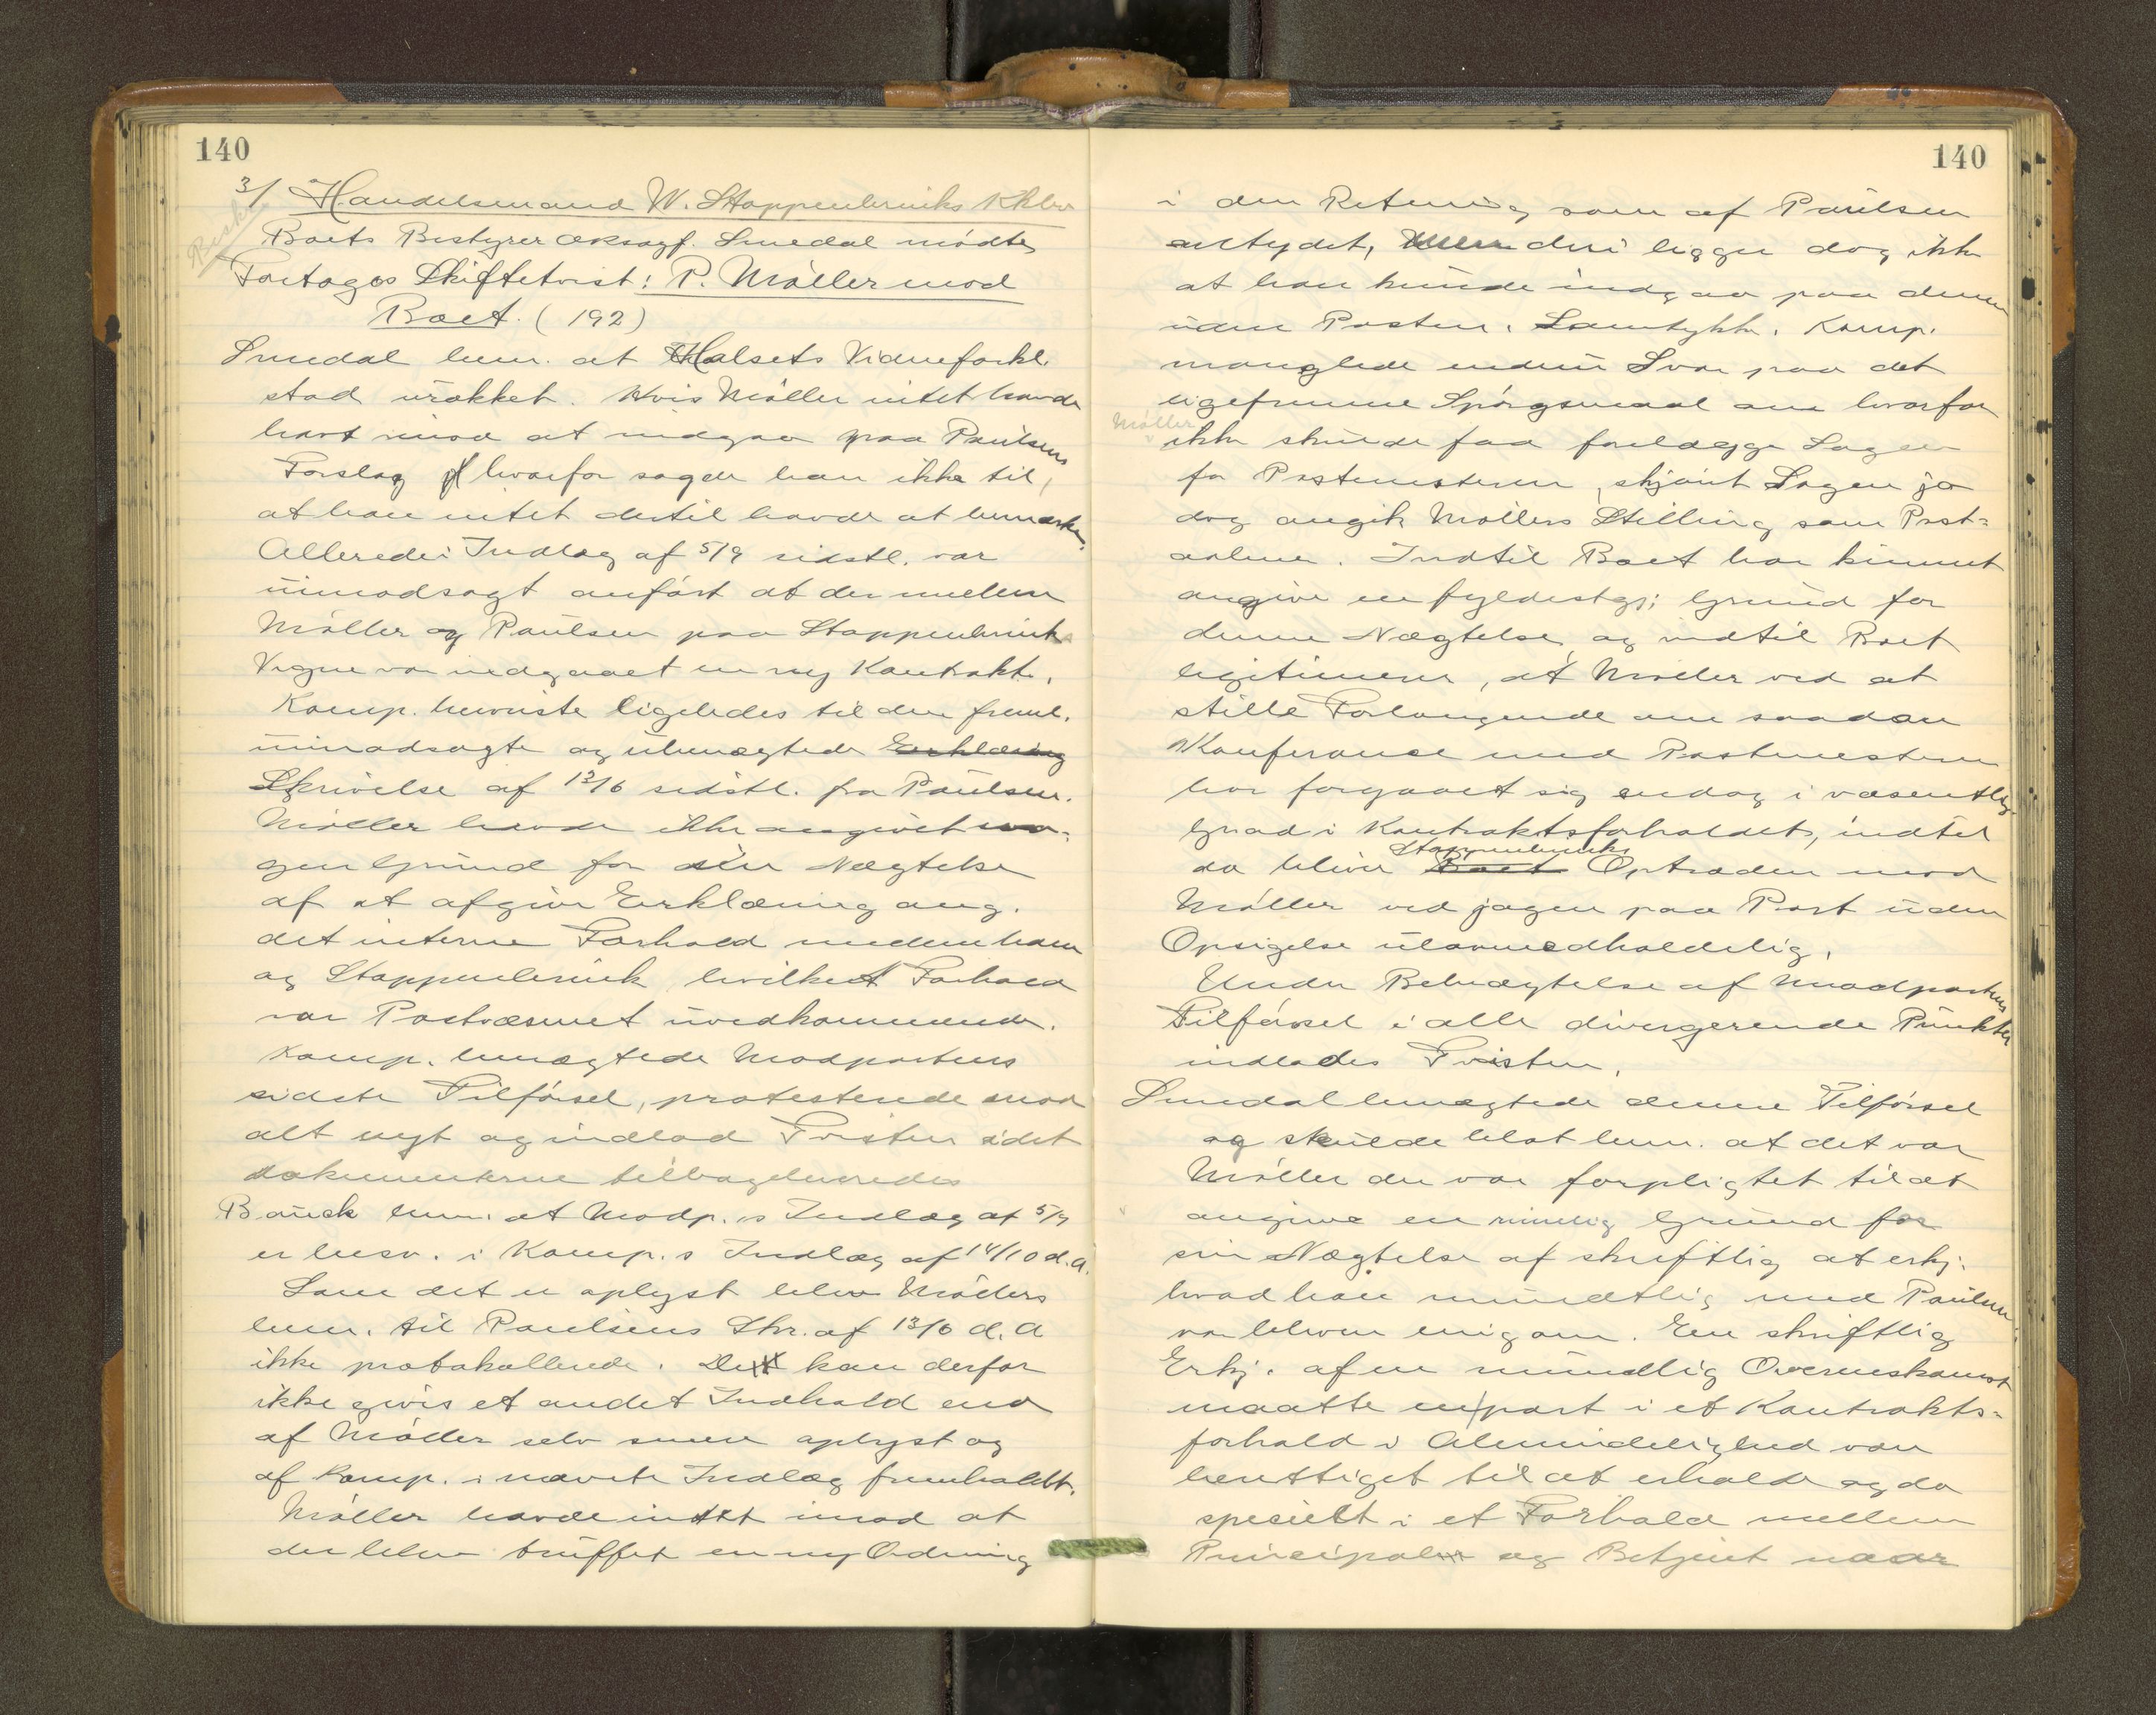 140
3/ Handelsmand W. Stoppenbrinks Kkbo
Beskr.
Boets Bestyrer oksagf. Smedal mødte,
Foretoges Skiftetvist: P. Møller mod
Boet. (192)
Smedal bem. at Halsets Vidneforkl.
stod urokket. Hvis Møller intet havde
havt imod at indgaa paa Paulsens
Forslag hvorfor sagde han ikke til,
at han intet dertil havde at bemærke.
Allerede i Indlæg af 5/9 sidstl. var
uimodsagt anført at der mellem
Møller og Paulsen paa Stoppenbrinks
Vegne var indgaaet en ny Kontrakt.
Komp. henviste ligeledes til den freml.
uimodsagte og ubenægtede Erklæring
Skrivelse af 13/6 sidstl. fra Paulsen.
Møller havde ikke angivet no-
gen Grund for sin Nægtelse
af at afgive Erklæring ang.
det interne Forhold mellem ham
og Stoppenbrink, hvilket Forhold
var Postvæsenet uvedkommende.
Komp. benægtede Modpartens
sidste Tilførsel, protesterede mod
alt nyt og indlod Tvisten idet
dokumenterne tilbageleveredes
Bauck bem. at Modp.s Indlæg af 5/9
er besv. i Komp.s Indlæg af 14/10 d.A.
Som det er oplyst blev Møllers
bem. til Paulsens Skr. af 13/6 d.A
ikke protokollerede. Det kan derfor
ikke givis et andet Indhold end
af Møller selv senere oplyst og
af Komp. i nævnte Indlæg fremholdt.
Møller havde intet imod at
der blev truffet en ny Ordning
140
i den Retning som af Paulsen
antydet, Men deri ligger dog ikke
at han kunde indgaa paa denne
uden Postm.s Samtykke. Komp.
manglede endnu Svar paa det
ligefremme Spørgsmaal om hvorfor
Møller
ikke skulde faa forelægge Sagen
for Postmesteren, skjønt Sagen jo
dog angik Møllers Stilling som Post-
aabner. Indtil Boet har kunnet
angive en fyldestgj. Grund for
denne Nægtelse, og indtil Boet
legitimerer, at Møller ved at
stille Forlangende om saadan
Konferance med Postmesteren
har forgaaet sig endog i væsentlig
Grad i Kontraktsforholdet, indtil
da bliver Boet Stoppenbrinks Optræden mod
Møller ved jagen paa Port uden
Opsigelse ulovmedholdelig.
Under Benægtelse af Modpartens
Tilførsel i alle divergerende Punkter
indlodes Tvisten.
Smedal benægtede denne Tilførsel
og skulde blot bem. at det var
Møller der var forpligtet til at
angive en rimelig Grund for
sin Nægtelse af skriftlig at erkj.
hvad han mundtlig med Paulsen
var bleven enig om. En skriftlig
Erkj. af en mundlig Overenskomst
maatte en part i et Kontrakts-
forhold i Almindelighed være
berettiget til at erholde og da
specielt i et Forhold mellem
Principal og Betjent naar